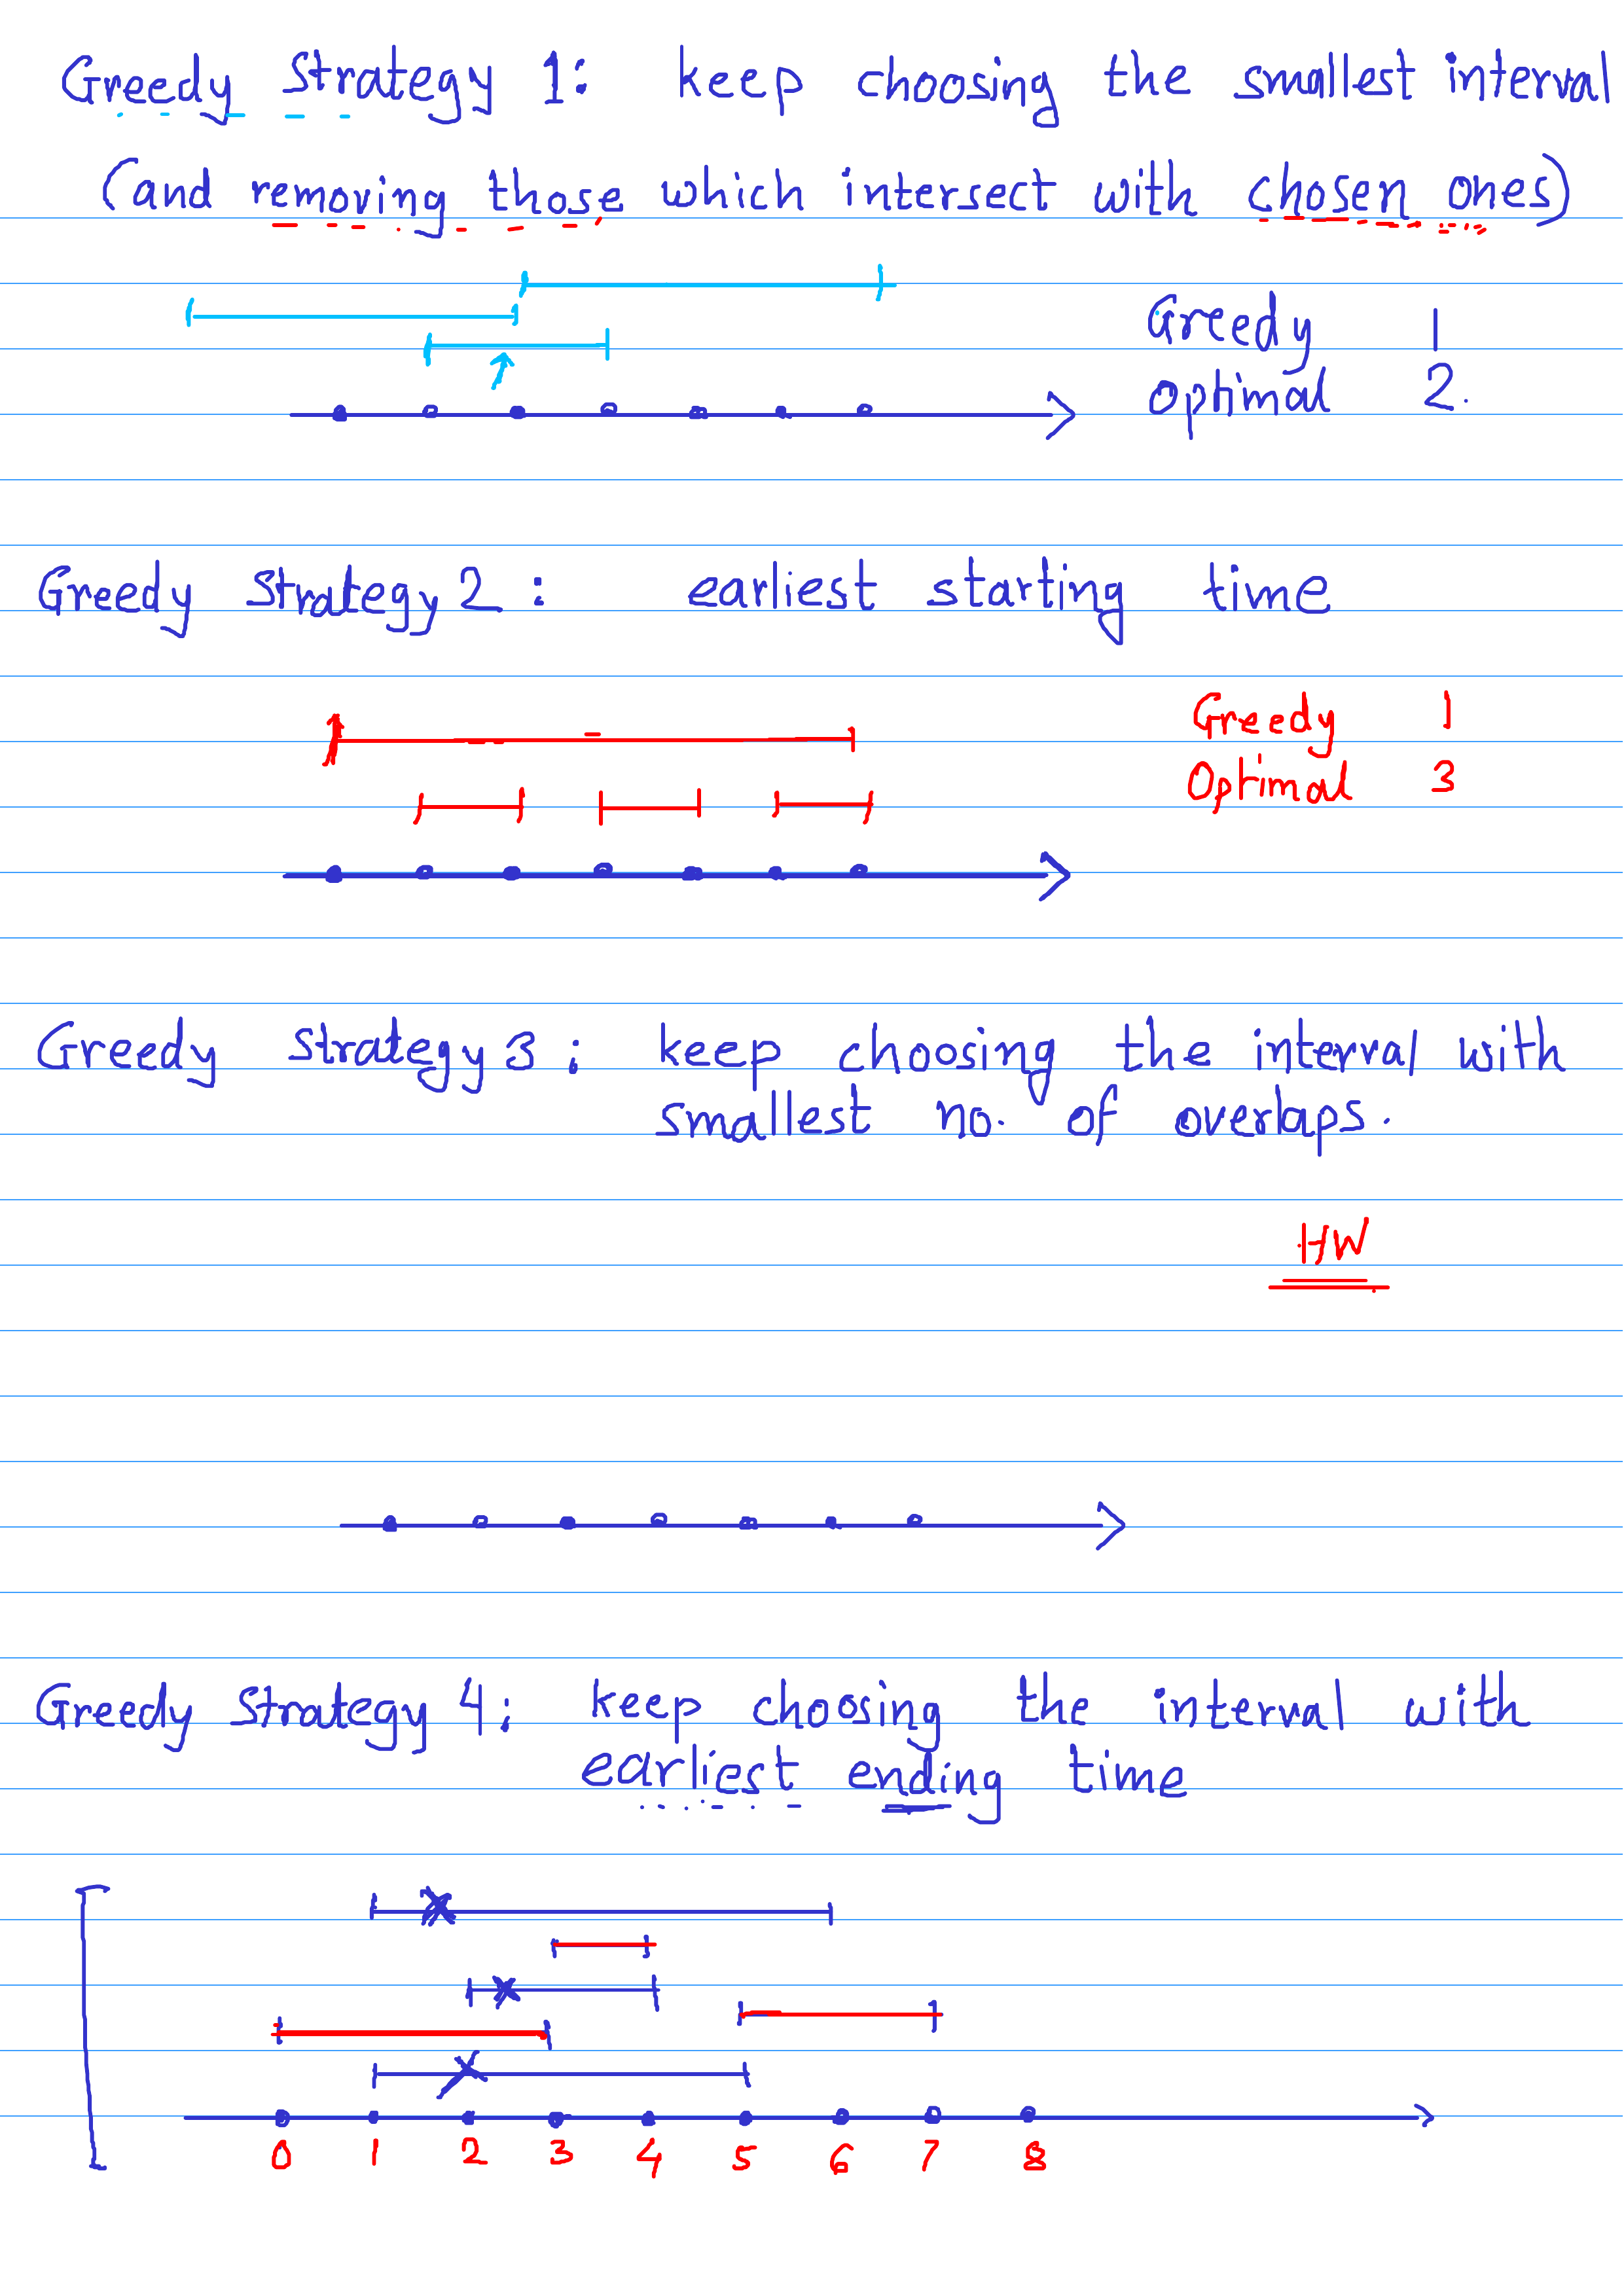 Greedy Strategy 1: keep choosing the smallest interval
(and removing those which intersect with chosen ones)
Greedy 1
Optimal 2.
Greedy Strategy 2: earliest starting time
Greedy 1
Optimal 3
Greedy Strategy 3: keep choosing the interval with
smallest no. of overlaps.
HW
Greedy Strategy 4: keep choosing the interval with
earliest ending time
0 1 2 3 4 5 6 7 8